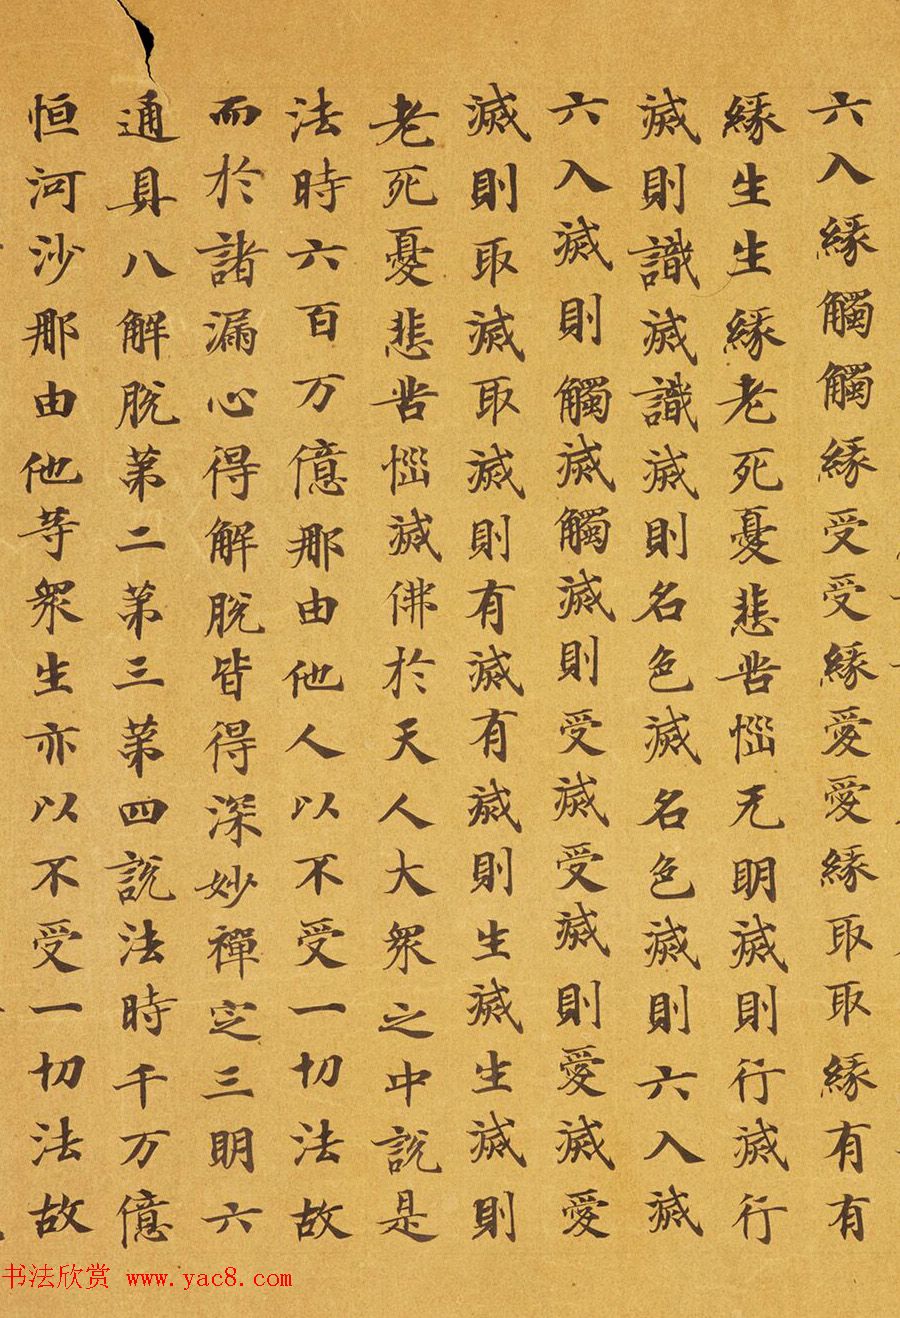 六入緣觸觸緣受受緣愛愛緣取取緣有有
緣生生緣老死憂悲苦惱无明滅則行滅行
滅則識滅識滅則名色滅名色滅則六入滅
六入滅則觸滅觸滅則受滅受滅則愛滅愛
滅則取滅取滅則有滅有滅則生滅生滅則
老死憂悲苦惱滅佛於天人大眾之中說是
法時六百万億那由他人以不受一切法故
而於諸漏心得解脫皆得深妙禪定三明六
通具八解脫第二第三第四說法時千万億
恒河沙那由他等眾生亦以不受一切法故
书法欣赏 www.yac8.com